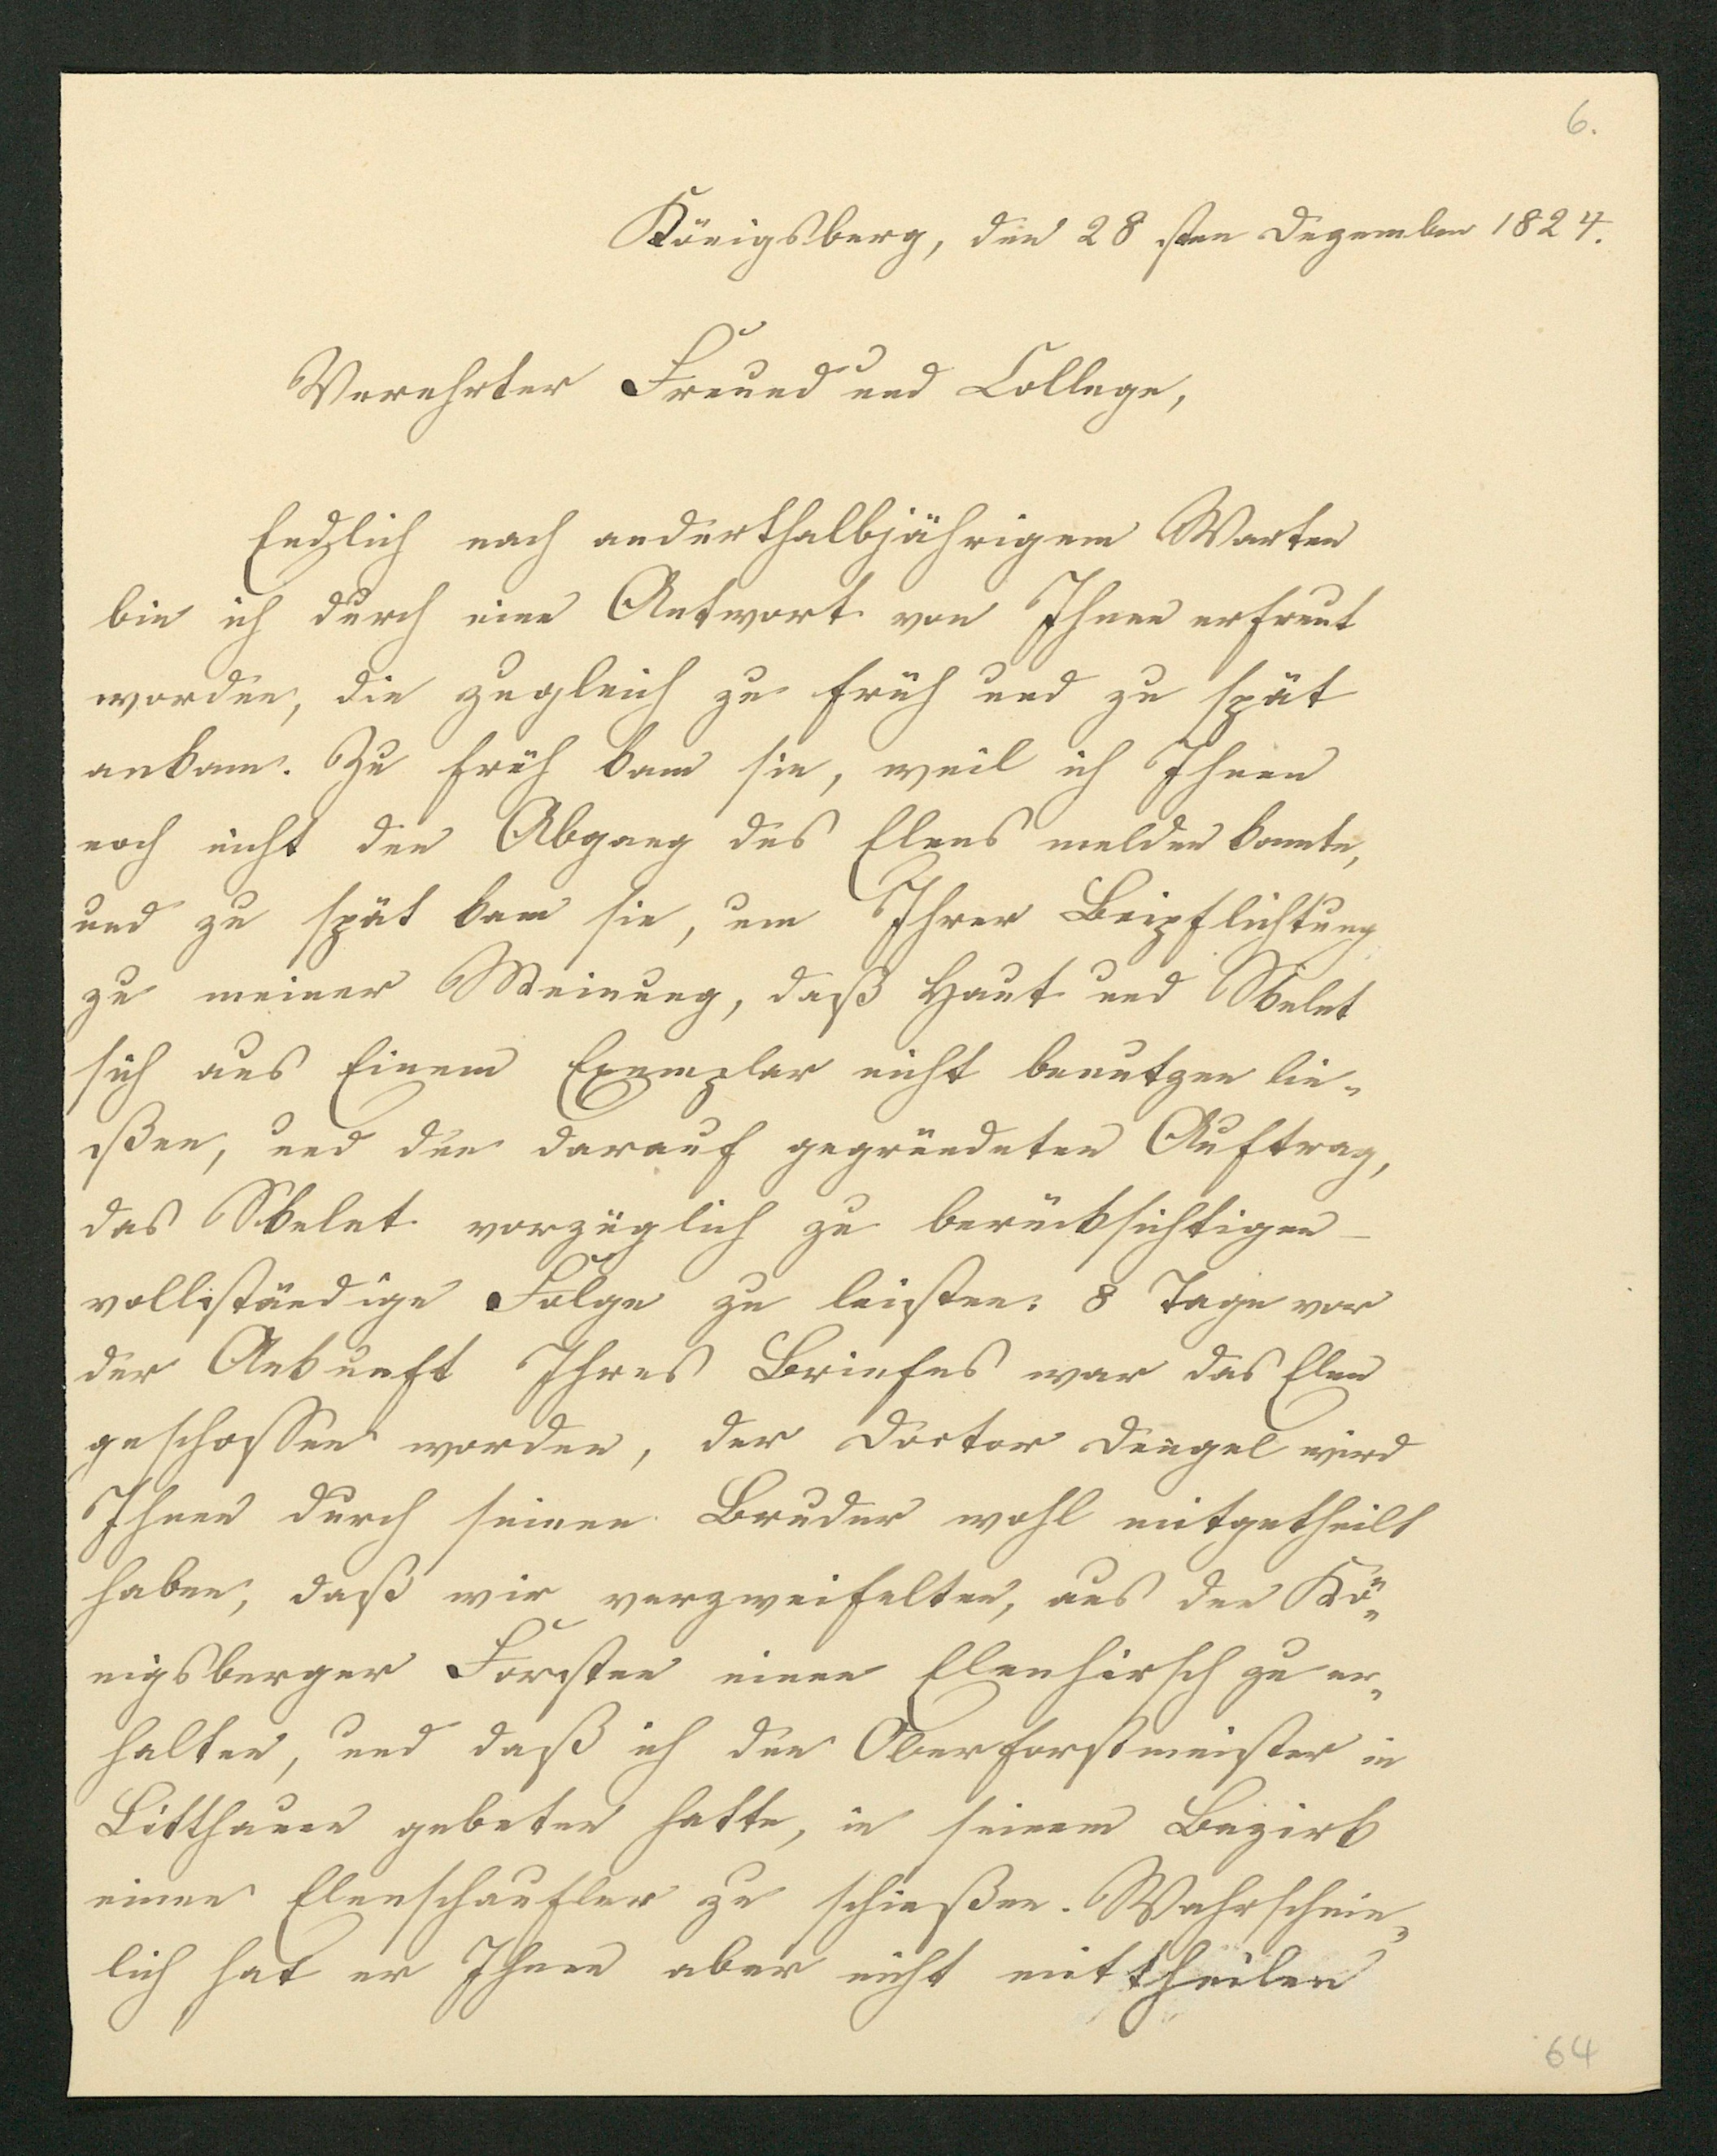 6.
Königsberg, den 28 sten Dezember 1824.
Verehrter Freund und College,
Endlich nach anderthalbjährigem Warten
bin ich durch eine Antwort von Ihnen erfreut
worden, die zugleich zu früh und zu spät
ankam. Zu früh kam sie, weil ich Ihnen
noch nicht den Abgang des Elens melden konnte,
und zu spät kam sie, um Ihrer Beipflichtung
zu meiner Meinung, daß Haut und Skelet
sich aus Einem Exemplar nicht benutzen lie-
ßen, und den darauf gegründeten Auftrag,
das Skelet vorzüglich zu berücksichtigen –
vollständige Folge zu leisten: 8 Tage vor
der Ankunft Ihres Briefes war das Elen
geschossen worden, der Doctor Dengel wird
Ihnen durch seinen Bruder wohl mitgetheilt
haben, daß wir verzweifelten, aus den Kö-
nigsberger Forsten einen Elenhirsch zu er-
halten, und daß ich den Oberforstmeister in
Litthauen gebeten hatte, in seinem Bezirk
einen Elenschaufler zu schießen. Wahrschein-
lich hat er Ihnen aber nicht mittheilen
64